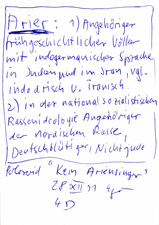 Arier: 1) Angehöriger
frühgeschichtlicher Völker
mit indogermanischer Sprache
in Indien und im Iran, vgl.
indoarisch u. iranisch
2) in der nationalsozialistischen
Rassenideologie Angehöriger
der nordischen Rasse,
Deutschblütiger, Nichtjude
"Kein Ariensänger"
28 XII 11
4D